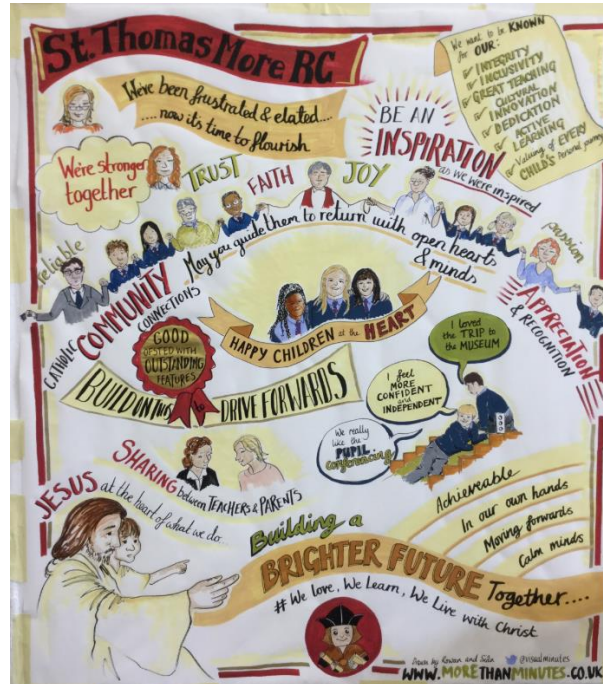 St. Thomas More RC
We've been frustrated & elated....
.... now it's time to flourish
We want to be KNOWN
for OUR:
INTEGRITY
INCLUSIVITY
GREAT TEACHING
CULTURAL
INNOVATION
DEDICATION
ACTIVE
LEARNING
Valuing of EVERY
CHILD'S Personal journey
BE AN
INSPIRATION
as we were inspired
We're stronger
together
TRUST
FAITH
JOY
reliable
passion
May you guide them to return with open hearts
& minds
CATHOLIC
COMMUNITY
CONNECTIONS
HAPPY CHILDREN at the HEART
APPRECIATION
& RECOGNITION
GOOD
OFSTED WITH
OUTSTANDING
FEATURES
BUILD ON THIS to DRIVE FORWARDS
I loved
the TRIP to
the MUSEUM
I feel
MORE
CONFIDENT
and
INDEPENDENT
We really
like the
PUPIL
conferencing
SHARING between TEACHERS & PARENTS
JESUS at the heart of what we do...
Achieveable
In our own hands
Moving forwards
Calm minds
Building a
BRIGHTER FUTURE Together....
# We love, We Learn, We Live with Christ
Drawn by Rowan and
@visualminutes
WWW.MORETHANMINUTES.CO.UK